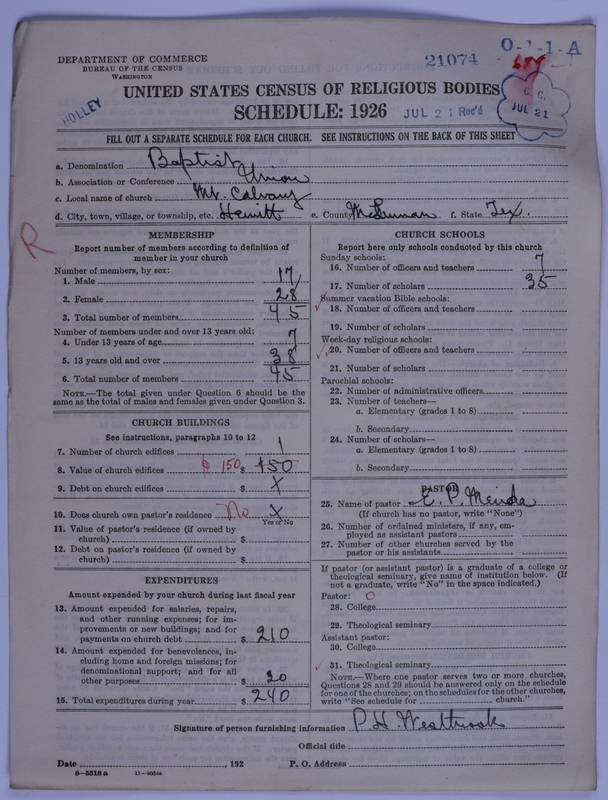 DEPARTMENT OF COMMERCE
BUREAU OF THE CENSUS
WASHINGTON
21074
O-1-1-A
HOLLEY
UNITED STATES CENSUS OF RELIGIOUS BODIES
SCHEDULE: 1926
JUL 21 Rec'd
C. C.
JUL 21
FILL OUT A SEPARATE SCHEDULE FOR EACH CHURCH. SEE INSTRUCTIONS ON THE BACK OF THIS SHEET
a. Denomination Baptist
b. Association or Conference Union
c. Local name of church Mt. Calvary
d. City, town, village, or township, etc. Hewitt e. County McLennan f. State Tex.
R
MEMBERSHIP
Report number of members according to definition of
member in your church
Number of members, by sex:
1. Male 17
2. Female 28
3. Total number of members 45
Number of members under and over 13 years old:
4. Under 13 years of age 7
5. 13 years old and over 38
6. Total number of members 45
NOTE.—The total given under Question 6 should be
the same as the total of males and females given under Question 3.
CHURCH BUILDINGS
See instructions, paragraphs 10 to 12
7. Number of church edifices 1
8. Value of church edifices $ 150 $ 150
9. Debt on church edifices $ X
10. Does church own pastor's residence No X
Yes or No
11. Value of pastor's residence (if owned by
church) $
12. Debt on pastor's residence (if owned by
church) $
EXPENDITURES
Amount expended by your church during last fiscal year
13. Amount expended for salaries, repairs,
and other running expenses; for im-
provements or new buildings; and for
payments on church debt $ 210
14. Amount expended for benevolences, in-
cluding home and foreign missions; for
denominational support; and for all
other purposes $
15. Total expenditures during year $ 240
CHURCH SCHOOLS
Report here only schools conducted by this church
Sunday schools:
16. Number of officers and teachers 7
17. Number of scholars 35
Summer vacation Bible schools:
18. Number of officers and teachers
19. Number of scholars
Week-day religious schools:
20. Number of officers and teachers
21. Number of scholars
Parochial schools:
22. Number of administrative officers
23. Number of teachers—
a. Elementary (grades 1 to 8)
b. Secondary
24. Number of scholars—
a. Elementary (grades 1 to 8)
b. Secondary
PASTOR
25. Name of pastor E. P.
(If church has no pastor, write "None")
26. Number of ordained ministers, if any, em-
ployed as assistant pastors
27. Number of other churches served by the
pastor or his assistants
If pastor (or assistant pastor) is a graduate of a college or
theological seminary, give name of institution below. (If
not a graduate, write "No" in the space indicated.)
Pastor: O
28. College
29. Theological seminary
Assistant pastor:
30. College
31. Theological seminary
NOTE.—Where one pastor serves two or more churches,
Questions 28 and 29 should be answered only on the schedule
for one of the churches; on the schedules for the other churches,
write "See schedule for church."
Signature of person furnishing information P. H. Westbrook
Official title
Date , 192 P. O. Address
8—5518 a 11—9054a